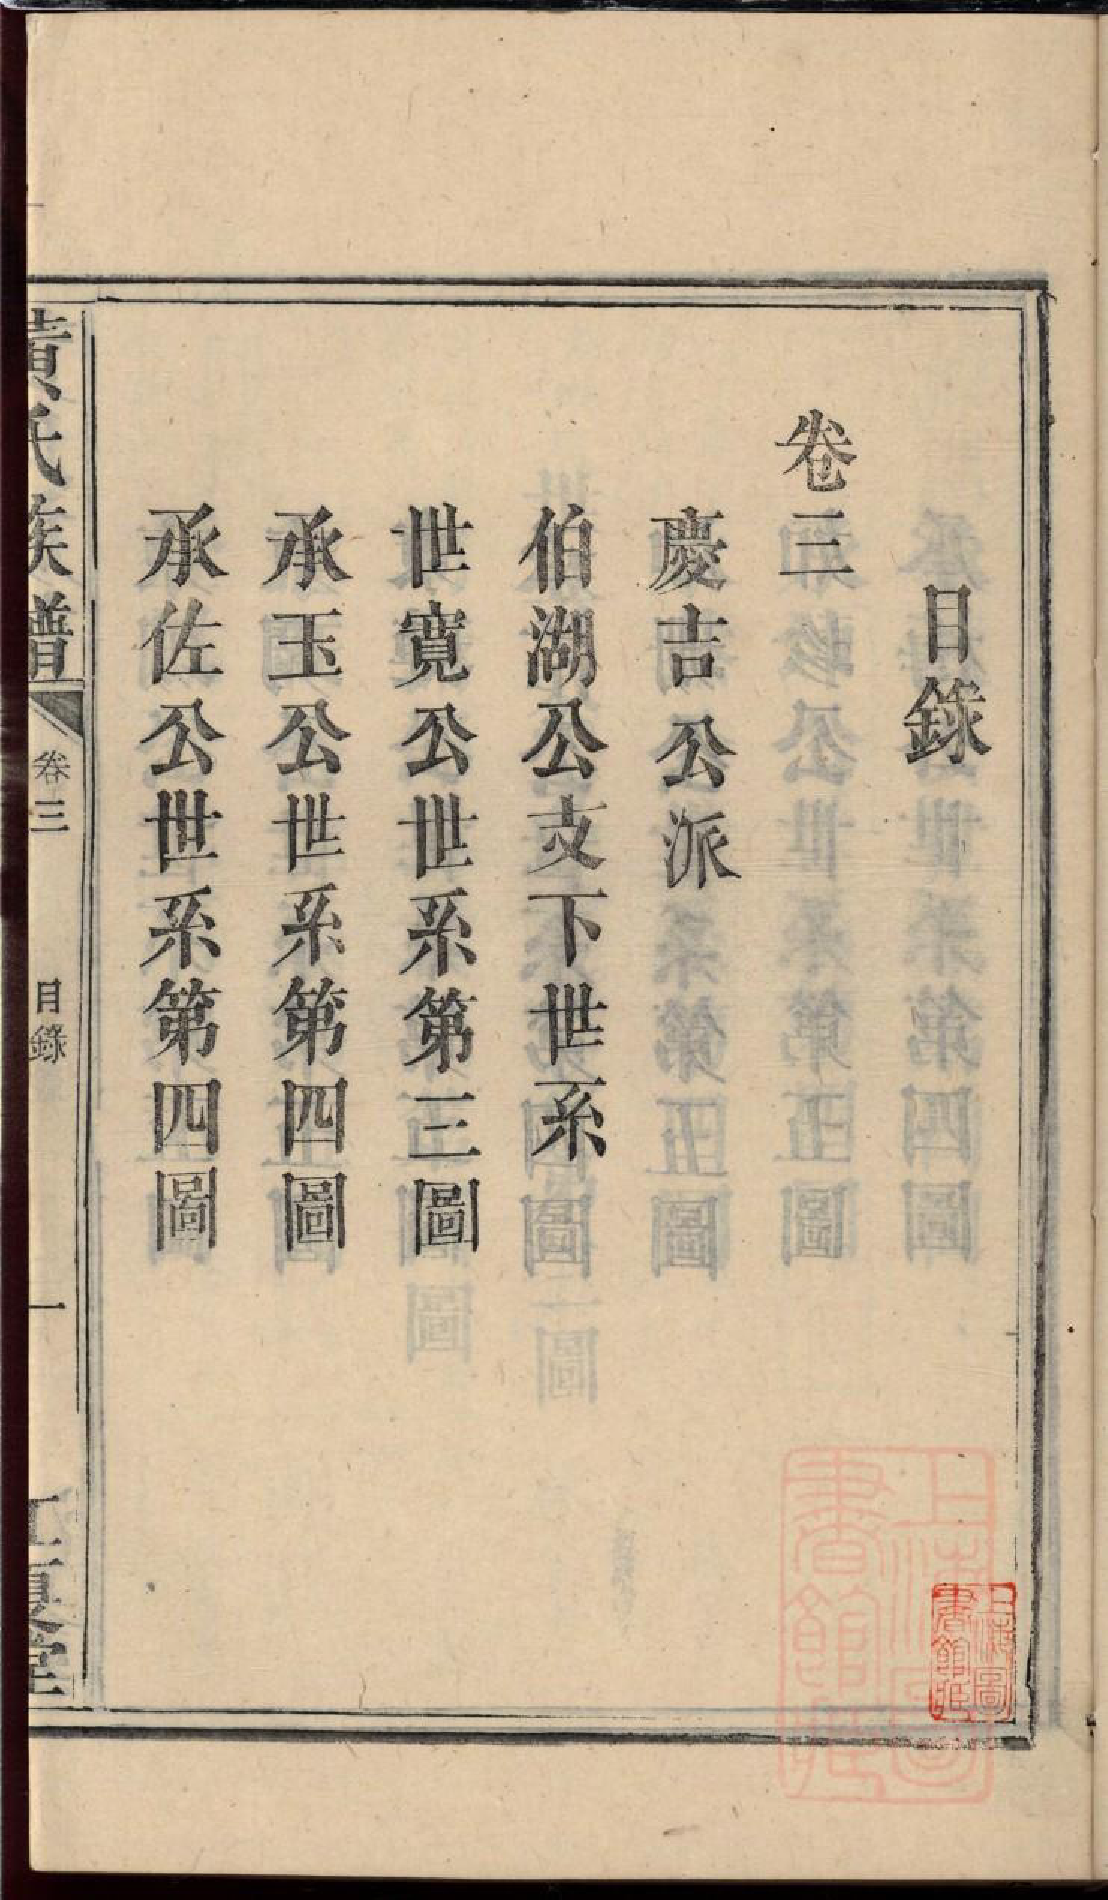 目錄
卷三
慶吉公派
伯湖公支下世系
世寬公世系第三圖
承玉公世系第四圖
承佐公世系第四圖
黃氏族譜
卷三
目錄
一
江夏堂
上海圖書館藏